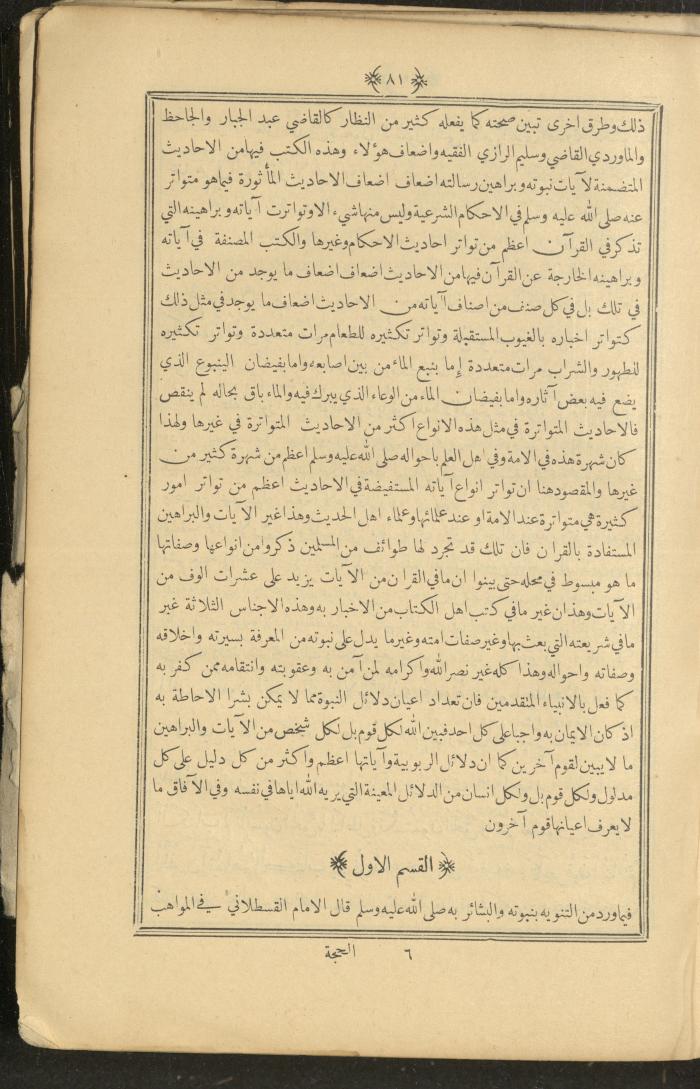 ﴿ ٨١ ﴾
ذلك وطرق اخرى تبين صحته كما يفعله كثير من النظار كالقاضي عبد الجبار والجاحظ
والماوردي القاضي وسليم الرازي الفقيه واضعاف هؤلاء وهذه الكتب فيها من الاحاديث
المتضمنة لآيات نبوته وبراهين رسالته اضعاف اضعاف الاحاديث المأثورة فيما هو متواتر
عنه صلى الله عليه وسلم في الاحكام الشرعية وليس منها شيء الا وتواترت آياته وبراهينه التي
تذكر في القرآن اعظم من تواتر احاديث الاحكام وغيرها والكتب المصنفة في آياته
وبراهينه الخارجة عن القرآن فيها من الاحاديث اضعاف اضعاف ما يوجد من الاحاديث
في تلك بل في كل صنف من اصناف آياته من الاحاديث اضعاف ما يوجد في مثل ذلك
كتواتر اخباره بالغيوب المستقبلة وتواتر تكثيره للطعام مرات متعددة وتواتر تكثيره
للطهور والشراب مرات متعددة إما بنبع الماء من بين اصابعه واما بفيضان الينبوع الذي
يضع فيه بعض آثاره واما بفيضان الماء من الوعاء الذي يبرك فيه والماء باق بحاله لم ينقص
فالاحاديث المتواترة في مثل هذه الانواع اكثر من الاحاديث المتواترة في غيرها ولهذا
كان شهرة هذه في الامة وفي اهل العلم باحواله صلى الله عليه وسلم اعظم من شهرة كثير من
غيرها والمقصود هنا ان تواتر انواع آياته المستفيضة في الاحاديث اعظم من تواتر امور
كثيرة هي متواترة عند الامة او عند علمائها وعلماء اهل الحديث وهذا غير الآيات والبراهين
المستفادة بالقرآن فان تلك قد تجرد لها طوائف من المسلمين ذكروا من انواعها وصفاتها
ما هو مبسوط في محله حتى بينوا ان ما في القرآن من الآيات يزيد على عشرات الوف من
الآيات وهذان غير ما في كتب اهل الكتاب من الاخبار به وهذه الاجناس الثلاثة غير
ما في شريعته التي بعث بها وغير صفات امته وغير ما يدل على نبوته من المعرفة بسيرته واخلاقه
وصفاته واحواله وهذا كله غير نصر الله واكرامه لمن آمن به وعقوبته وانتقامه ممن كفر به
كما فعل بالانبياء المتقدمين فان تعداد اعيان دلائل النبوة مما لا يمكن بشرا الاحاطة به
اذ كان الايمان به واجبا على كل احد فبين الله لكل قوم بل لكل شخص من الآيات والبراهين
ما لا يبين لقوم آخرين كما ان دلائل الربوبية وآياتها اعظم واكثر من كل دليل على كل
مدلول ولكل قوم بل ولكل انسان من الدلائل المعينة التي يريه الله اياها في نفسه وفي الآفاق ما
لا يعرف اعيانها قوم آخرون
﴿ القسم الاول ﴾
فيما ورد من التنويه بنبوته والبشائر به صلى الله عليه وسلم قال الامام القسطلاني في المواهب
٦ الحجة